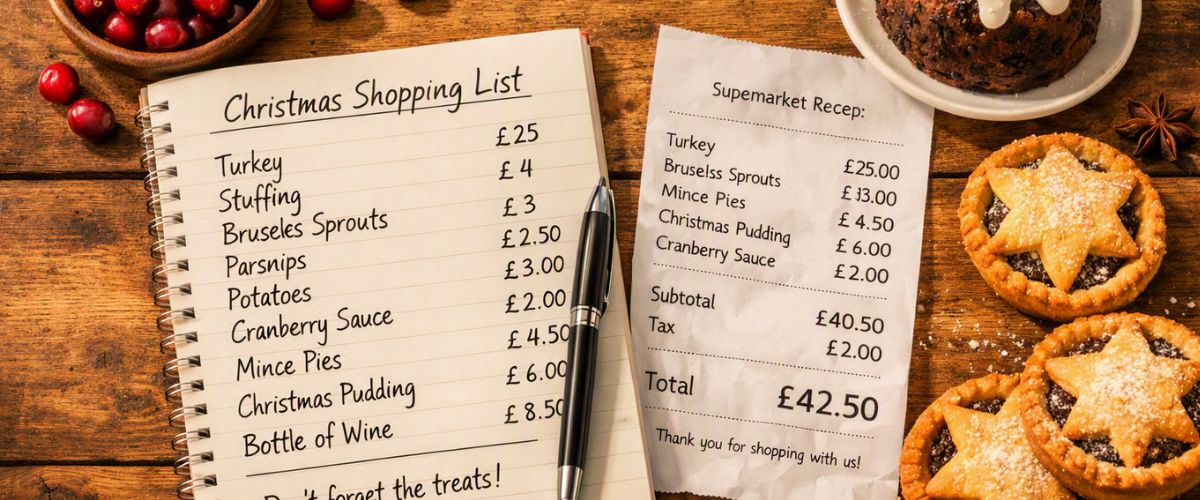 Christmas Shopping List
Turkey £25
Stuffing £4
Bruseles Sprouts £3
Parsnips £2.50
Potatoes £3.00
Cranberry Sauce £2.00
Mince Pies £4.50
Christmas Pudding £6.00
Bottle of Wine £8.50
Don't forget the treats!
Supemarket Recep:
Turkey £25.00
Bruselss Sprouts
Mince Pies £4.50
Christmas Pudding £6.00
Cranberry Sauce £2.00
Subtotal £40.50
Tax £2.00
Total £42.50
Thank you for shopping with us!